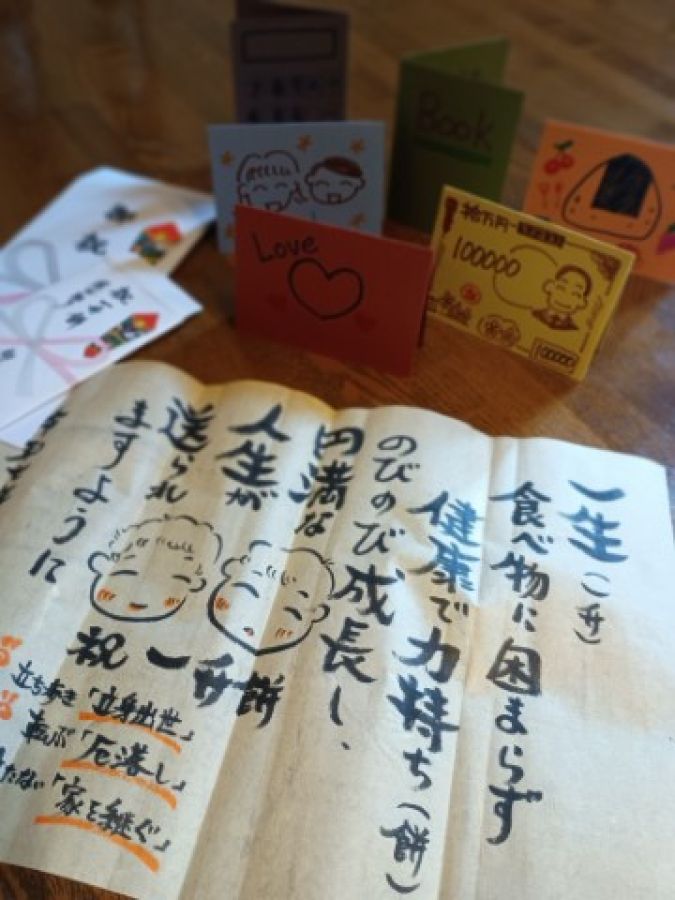 Book
Love
拾万円
100000
100000
一生(一升)
食べ物に困まらず
健康で力持ち(餅)
のびのび成長し、
円満な
人生が
送られ
ますように
祝一升餅
立ち歩き「立身出世」
転ぶ「厄落し」
たない「家を継ぐ」